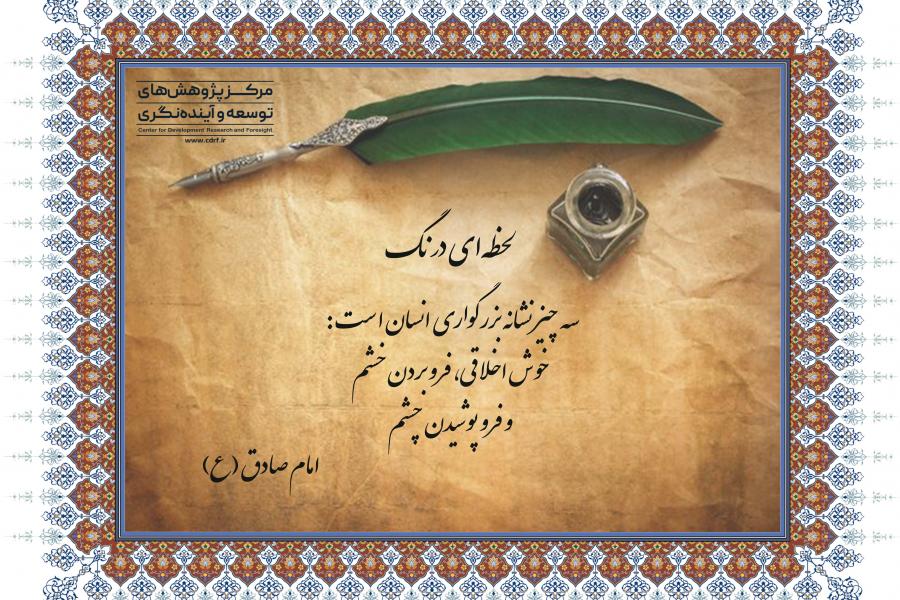 مرکز پژوهش‌های
توسعه و آینده‌نگری
Center for Development Research and Foresight
www.cdrf.ir
لحظه‌ای درنگ
سه چیز نشانه بزرگواری انسان است:
خوش اخلاقی، فرو بردن خشم
و فرو پوشیدن چشم
امام صادق (ع)